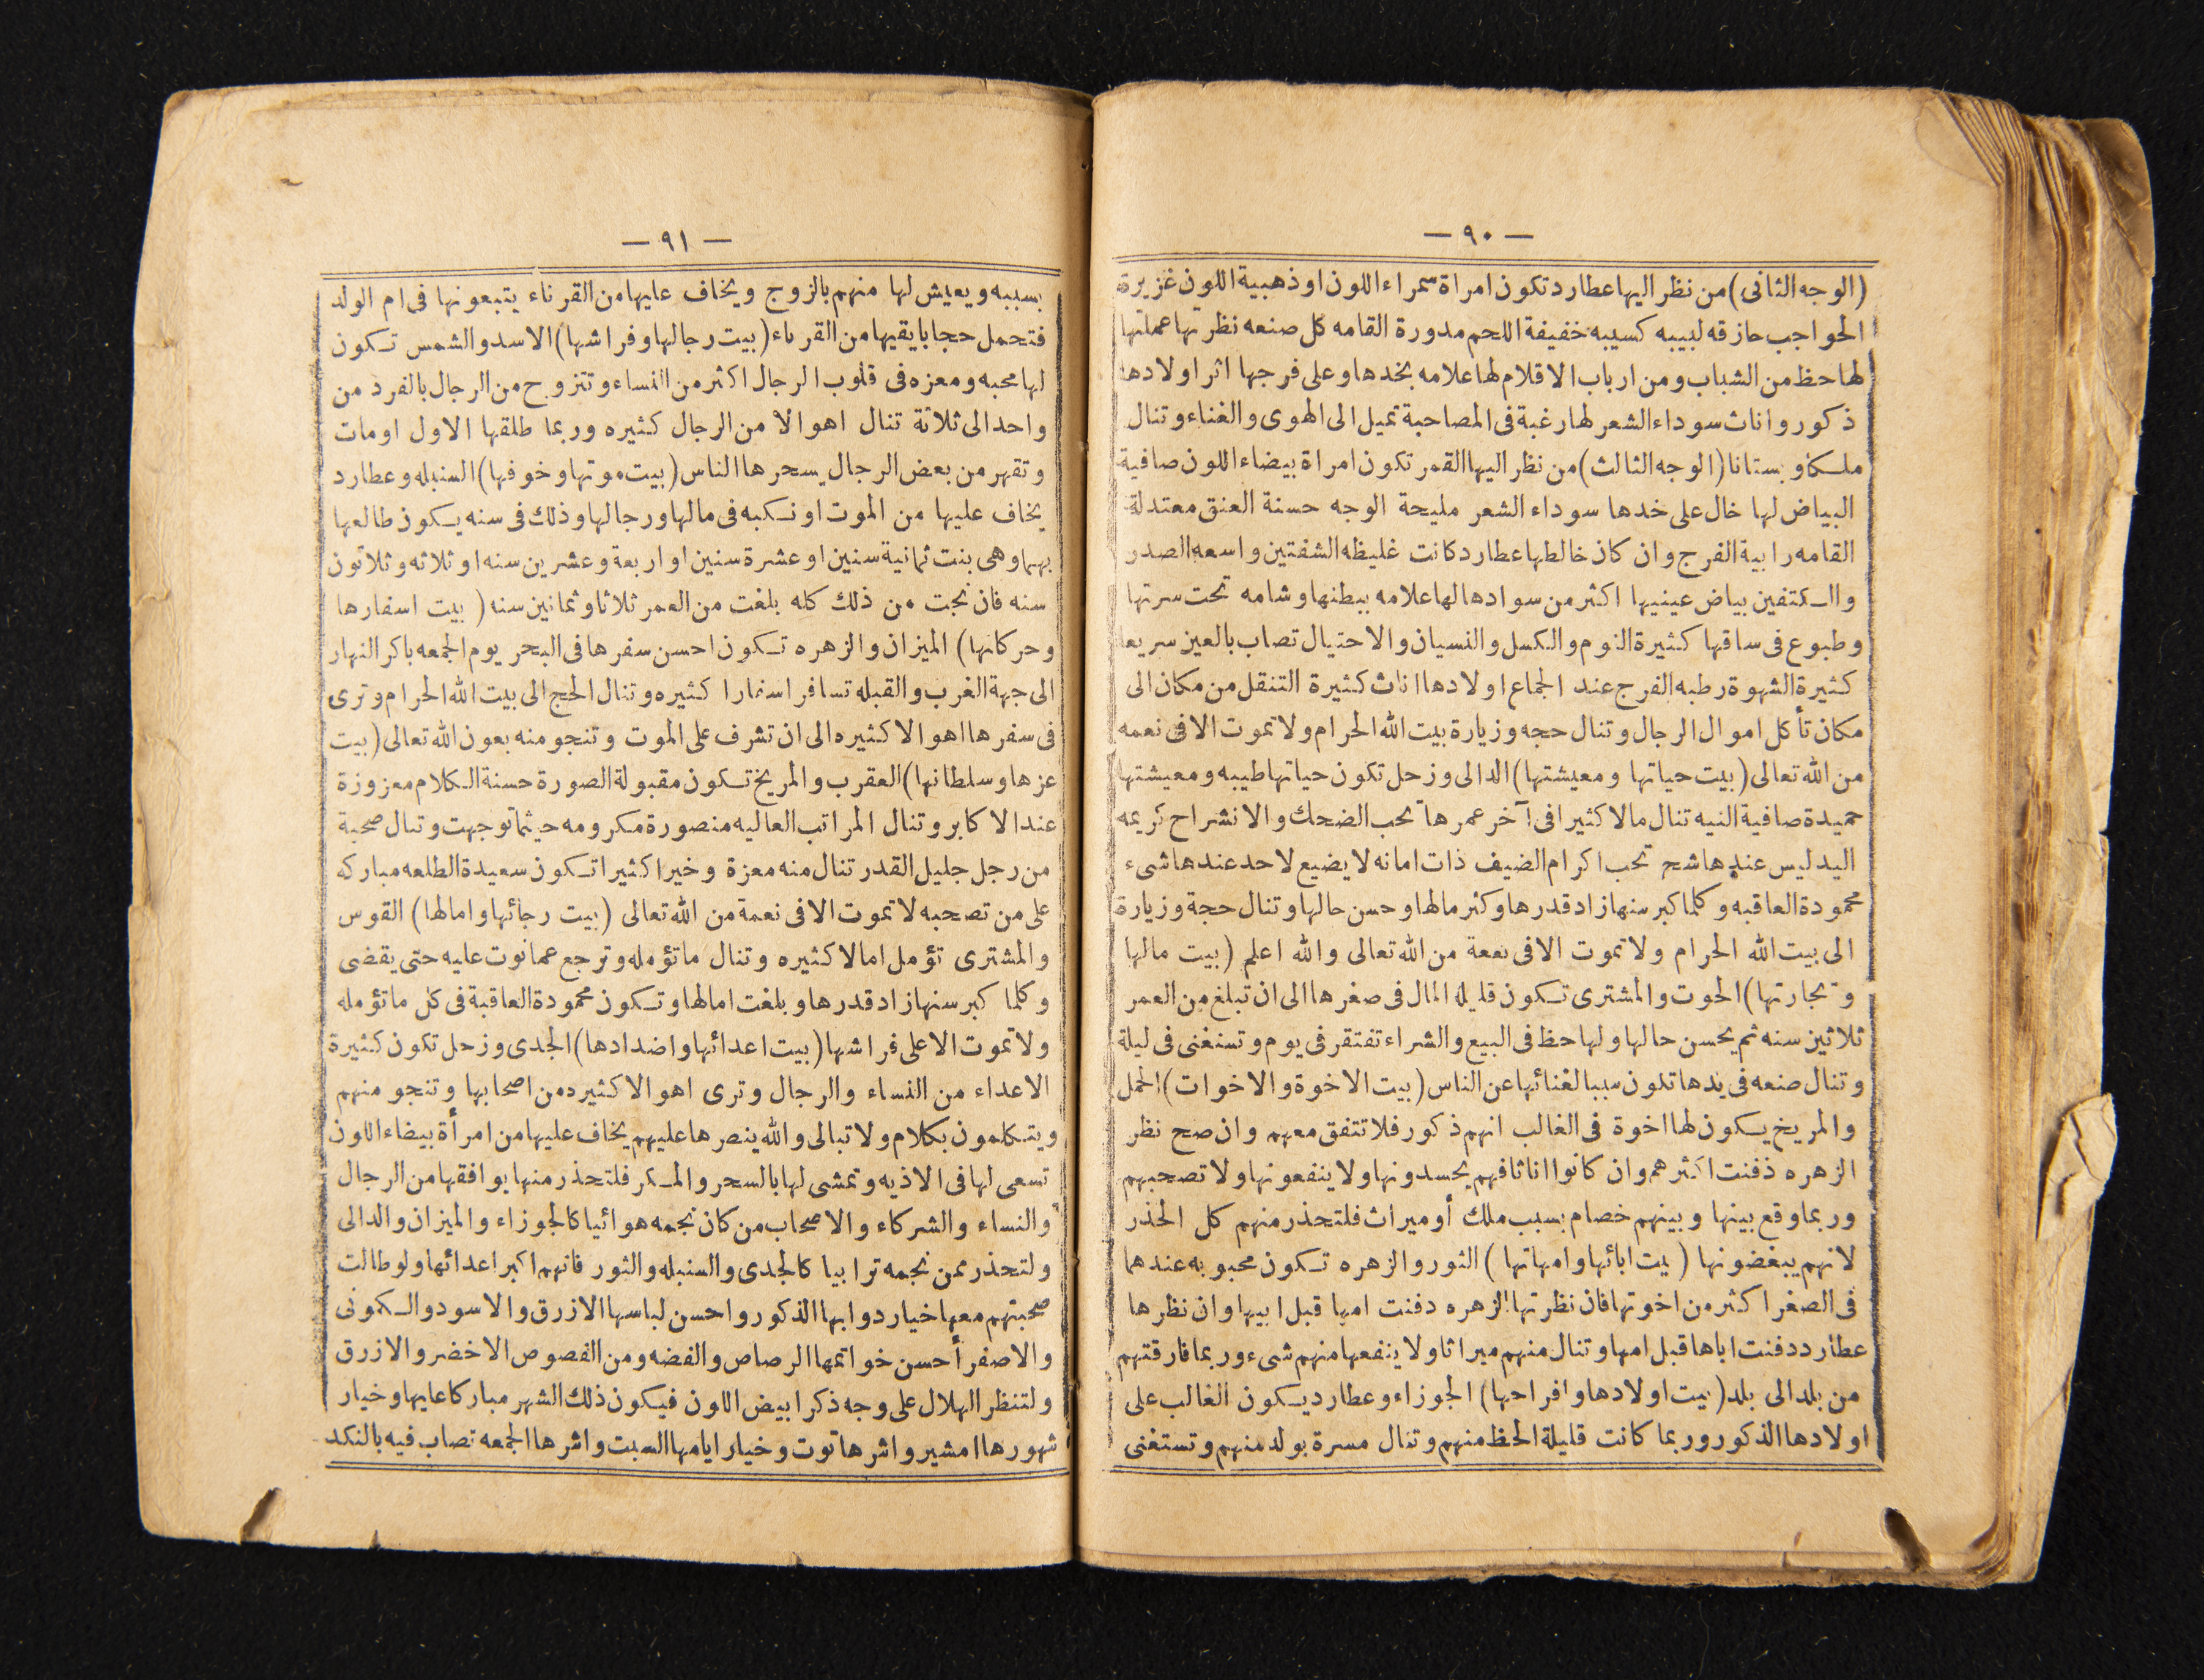 — ٩٠ —
(الوجه الثانى) من نظر اليها عطارد تكون امراة سمراء اللون او ذهبية اللون غزيرة
الحواجب حازقه لبيبه كسيبه خفيفة اللحم مدورة القامه كل صنعه نظرتها عملتها
لها حظ من الشباب ومن ارباب الاقلام لها علامه بخدها وعلى فرجها اثر اولادها
ذكور واناث سوداء الشعر لها رغبة فى المصاحبة تميل الى الهوى والغناء وتنال
ملكا وبستانا (الوجه الثالث) من نظر اليها القمر تكون امراة بيضاء اللون صافية
البياض لها خال على خدها سوداء الشعر مليحة الوجه حسنة العنق معتدلة
القامه رابية الفرج وان كان خالطها عطارد كانت غليظه الشفتين واسعه الصدر
والكتفين بياض عينيها اكثر من سوادها لها علامه ببطنها وشامه تحت سرتها
وطبوع فى ساقها كثيرة النوم والكسل والنسيان والاحتيال تصاب بالعين سريعا
كثيرة الشهوة رطبه الفرج عند الجماع اولادها اناث كثيرة التنقل من مكان الى
مكان تأكل اموال الرجال وتنال حجه وزيارة بيت الله الحرام ولا تموت الا فى نعمه
من الله تعالى (بيت حياتها ومعيشتها) الدالى وزحل تكون حياتها طيبه ومعيشتها
حميدة صافية النيه تنال مالا كثيرا فى آخر عمرها تحب الضحك والانشراح كريمه
اليد ليس عندها شح تحب اكرام الضيف ذات امانه لا يضيع لاحد عندها شىء
محمودة العاقبه وكلما كبر سنها زاد قدرها وكثر مالها وحسن حالها وتنال حجة وزيارة
الى بيت الله الحرام ولا تموت الا فى نعمة من الله تعالى والله اعلم (بيت مالها
وتجارتها) الحوت والمشترى تكون قليله المال فى صغرها الى ان تبلغ من العمر
ثلاثين سنه ثم يحسن حالها ولها حظ فى البيع والشراء تفتقر فى يوم وتستغنى فى ليلة
وتنال صنعه فى يدها تكون سببا لغنائها عن الناس (بيت الاخوة والاخوات) الحمل
والمريخ يكون لها اخوة فى الغالب انهم ذكور فلا تتفق معهم وان صح نظر
الزهره دفنت اكثرهم وان كانوا اناثا فهم يحسدونها ولا ينفعونها ولا تصحبهم
وربما وقع بينها وبينهم خصام بسبب ملك أو ميراث فلتحذر منهم كل الحذر
لانهم يبغضونها (بيت ابائها وامهاتها) الثور والزهره تكون محبوبه عندهما
فى الصغر اكثر من اخوتها فان نظرتها الزهره دفنت امها قبل ابيها وان نظرها
عطارد دفنت اباها قبل امها وتنال منهم ميراثا ولا ينفعها منهم شىء وربما فارقتهم
من بلد الى بلد (بيت اولادها وافراحها) الجوزاء وعطارد يكون الغالب على
اولادها الذكور وربما كانت قليلة الحظ منهم وتنال مسرة بولد منهم وتستغنى
— ٩١ —
بسببه ويعيش لها منهم بالزوج ويخاف عليها من القرناء يتبعونها فى ام الولد
فتحمل حجابا يقيها من القرناء (بيت رجالها وفراشها) الاسد والشمس تكون
لها محبه ومعزه فى قلوب الرجال اكثر من النساء وتتزوج من الرجال بالفرد من
واحد الى ثلاثة تنال اهوالا من الرجال كثيره وربما طلقها الاول او مات
وتقهر من بعض الرجال يسحرها الناس (بيت موتها وخوفها) السنبله وعطارد
يخاف عليها من الموت او نكبه فى مالها ورجالها وذلك فى سنه يكون طالعها
بهما وهى بنت ثمانية سنين او عشرة سنين او اربعة وعشرين سنه او ثلاثه وثلاثون
سنه فان نجت من ذلك كله بلغت من العمر ثلاثا وثمانين سنه (بيت اسفارها
وحركاتها) الميزان والزهره تكون احسن سفرها فى البحر يوم الجمعه باكر النهار
الى جهة الغرب والقبله تسافر اسفارا كثيره وتنال الحج الى بيت الله الحرام وترى
فى سفرها اهوالا كثيره الى ان تشرف على الموت وتنجو منه بعون الله تعالى (بيت
عزها وسلطانها) العقرب والمريخ تكون مقبولة الصورة حسنة الكلام معزوزة
عند الاكابر وتنال المراتب العاليه منصورة مكرومه حيثما توجهت وتنال صحبة
من رجل جليل القدر تنال منه معزة وخيرا كثيرا تكون سعيدة الطلعه مباركه
على من تصحبه لا تموت الا فى نعمة من الله تعالى (بيت رجائها وامالها) القوس
والمشترى تؤمل امالا كثيره وتنال ما تؤمله وترجع عما نوت عليه حتى يقضى
وكلما كبر سنها زاد قدرها وبلغت امالها وتكون محمودة العاقبة فى كل ما تؤمله
ولا تموت الا على فراشها (بيت اعدائها واضدادها) الجدى وزحل تكون كثيرة
الاعداء من النساء والرجال وترى اهوالا كثيره من اصحابها وتنجو منهم
ويتكلمون بكلام ولا تبالى والله ينصرها عليهم يخاف عليها من امرأة بيضاء اللون
تسعى لها فى الاذيه وتمشى لها بالسحر والمكر فلتحذر منها يوافقها من الرجال
والنساء والشركاء والاصحاب من كان نجمه هوائيا كالجوزاء والميزان والدالى
ولتحذر ممن نجمه ترابيا كالجدى والسنبله والثور فانهم اكبر اعدائها ولو طالت
صحبتهم معها خيار دوابها الذكور واحسن لباسها الازرق والاسود والكمونى
والاصفر أحسن خواتمها الرصاص والفضه ومن الفصوص الاخضر والازرق
ولتنظر الهلال على وجه ذكر ابيض اللون فيكون ذلك الشهر مباركا عليها وخيار
شهورها امشير واشرها توت وخيار ايامها السبت واشرها الجمعه تصاب فيه بالنكد